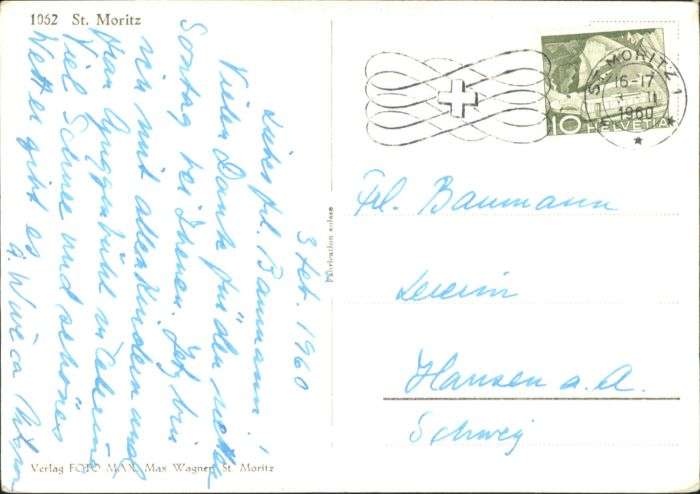 1052 St. Moritz
3 Feb. 1960
Liebes Frl. Baumann!
Vielen Dank für den netten
Sontag bei Ihnen. Jetz bin
ich mit allen Kindern und
Viel Schnee und schönes
Wetter gibt es
Verlag FOTO MAX, Max Wagner, St. Moritz
Fabrication suisse
ST. MORITZ 1
16-17
1960
10 HELVETIA
Frl. Baumann
Hausen a. A.
Schweiz